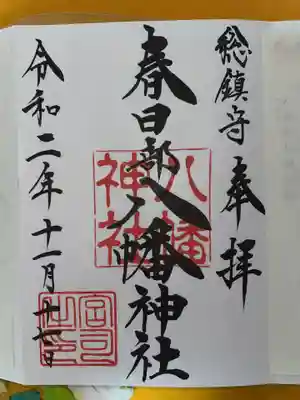 総鎮守 奉拝
春日部八幡神社
八幡神社
令和二年十一月十七日
宮司之印